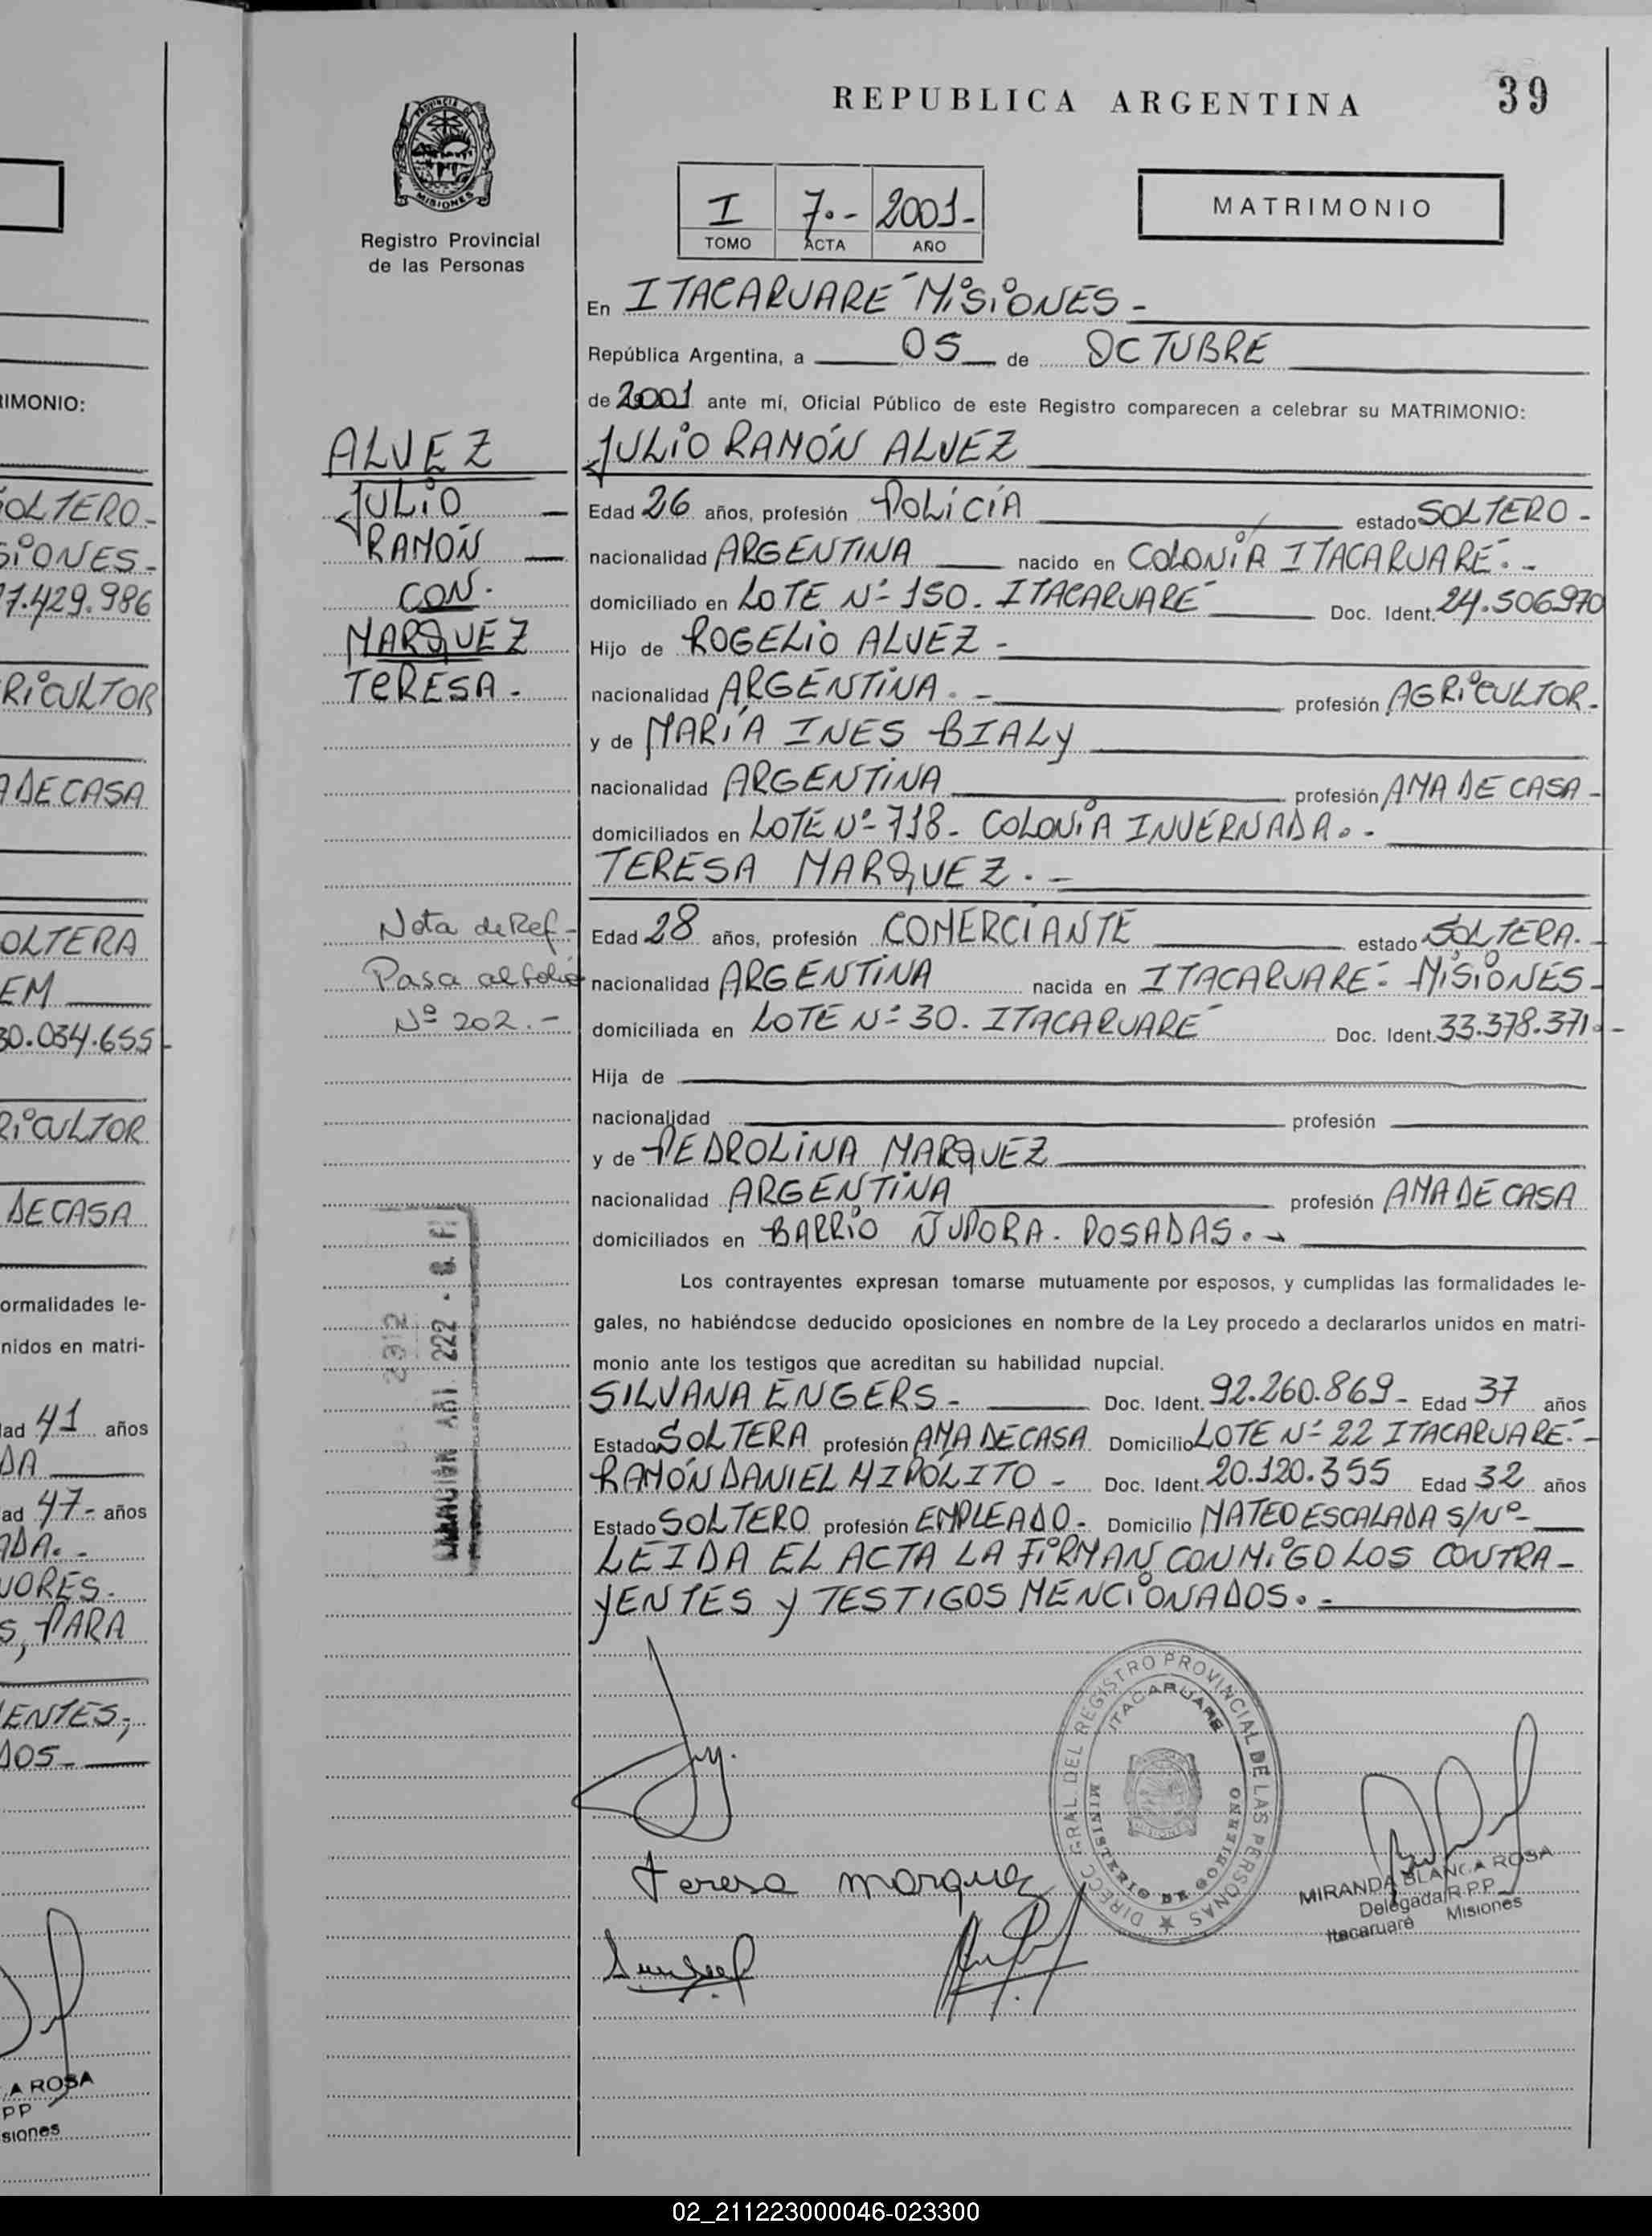 REPUBLICA ARGENTINA
39
PROVINCIA DE
MISIONES
Registro Provincial
de las Personas
I 7.- 2001-
TOMO ACTA AÑO
MATRIMONIO
En ITACARUARE MISIONES -
República Argentina, a 05 de OCTUBRE
de 2001 ante mí, Oficial Público de este Registro comparecen a celebrar su MATRIMONIO:
ALVEZ
JULIO
RAMÓN
CON.
MARQUEZ
TERESA.-
JULIO RAMÓN ALVEZ
Edad 26 años, profesión POLICÍA estado SOLTERO-
nacionalidad ARGENTINA nacido en COLONIA ITACARUARÉ.-
domiciliado en LOTE Nº 150. ITACARUARÉ Doc. Ident. 24.506970
Hijo de ROGELIO ALVEZ -
nacionalidad ARGENTINA.- profesión AGRICULTOR.
y de MARÍA INES BIALY
nacionalidad ARGENTINA profesión AMA DE CASA-
domiciliados en LOTE Nº 718- COLONIA INVERNADA.-
TERESA MARQUEZ.-
Nota de Ref.-
Pasa al folio
Nº 202.-
Edad 28 años, profesión COMERCIANTE estado SOLTERA.
nacionalidad ARGENTINA nacida en ITACARUARÉ- MISIONES-
domiciliada en LOTE Nº 30. ITACARUARÉ Doc. Ident. 33.378.371.-
Hija de
nacionalidad profesión
y de PEDROLINA MARQUEZ
nacionalidad ARGENTINA profesión AMA DE CASA
domiciliados en BARRIO ÑUPORA. POSADAS.-
Los contrayentes expresan tomarse mutuamente por esposos, y cumplidas las formalidades le-
gales, no habiéndose deducido oposiciones en nombre de la Ley procedo a declararlos unidos en matri-
monio ante los testigos que acreditan su habilidad nupcial.
SILVANA ENGERS- Doc. Ident. 92.260.869- Edad 37 años
Estado SOLTERA profesión AMA DE CASA Domicilio LOTE Nº 22 ITACARUARÉ.-
RAMÓN DANIEL HIPÓLITO- Doc. Ident. 20.120.355 Edad 32 años
Estado SOLTERO profesión EMPLEADO- Domicilio MATEO ESCALADA S/Nº-
LEIDA EL ACTA LA FIRMAN CONMIGO LOS CONTRA-
YENTES Y TESTIGOS MENCIONADOS.-
DIRECC GRAL. DEL REGISTRO PROVINCIAL DE LAS PERSONAS
ITACARUARE
MINISTERIO DE GOBIERNO
Teresa Marquez
MIRANDA BLANCA ROSA
Delegada R.P.P.
Itacaruaré Misiones
IMONIO:
SOLTERO-
SIONES-
7.429.986
RICULTOR
A DE CASA
OLTERA
EM
30.034.655-
RICULTOR
DE CASA
ormalidades le-
nidos en matri-
ad 41 años
DA
ad 47- años
ADA.-
JORES.-
S, PARA
ENTES,
DOS-
A ROSA
PP
siones
02_211223000046-023300